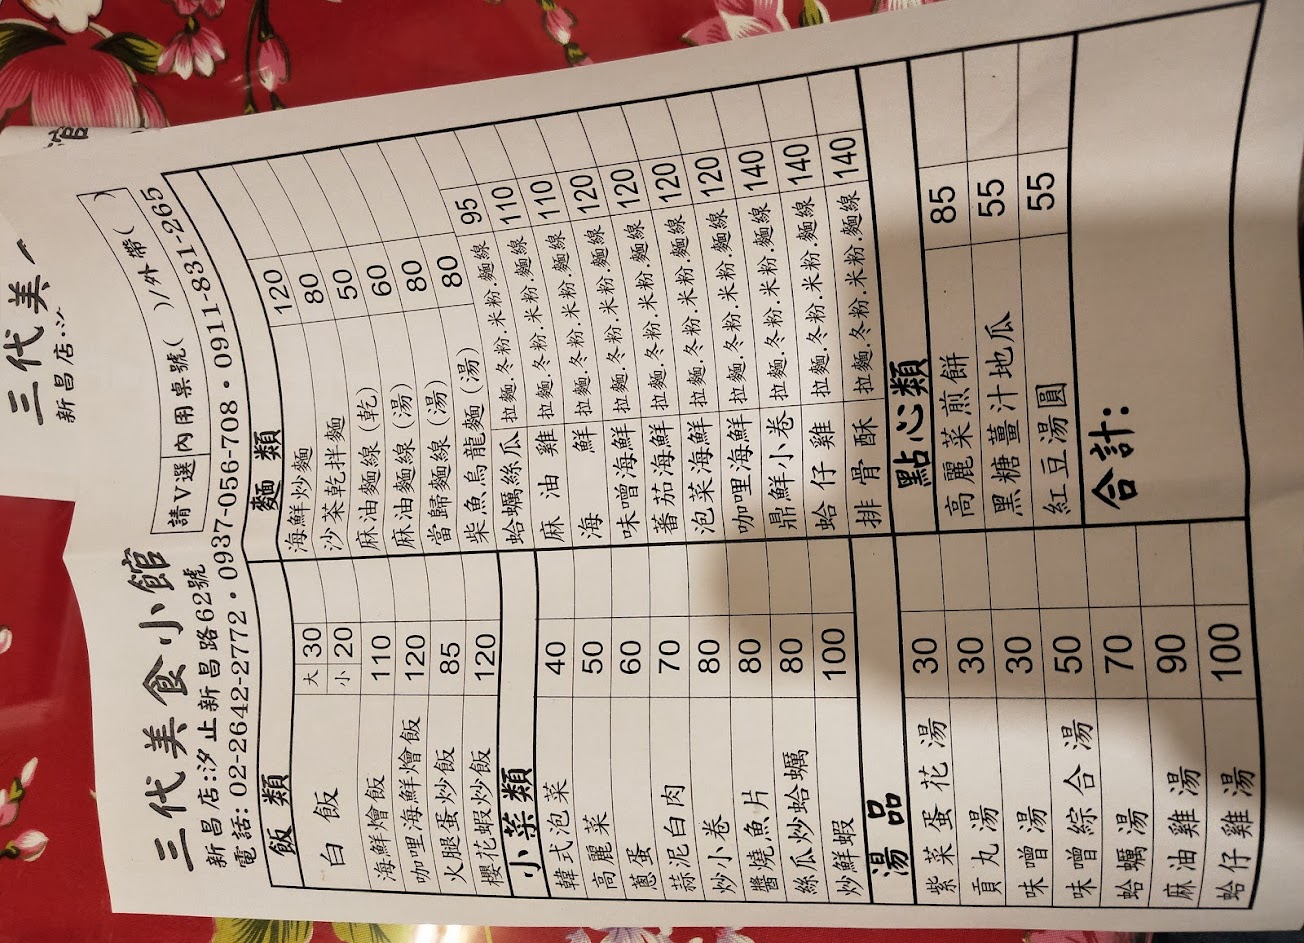 三代美食小館
新昌店:汐止新昌路62號
電話: 02-2642-2772·0937-056-708·0911-831-265
請V選 內用桌號( )/外帶( )
飯類
白飯 大 30
小 20
海鮮燴飯 110
咖哩海鮮燴飯 120
火腿蛋炒飯 85
櫻花蝦炒飯 120
小菜類
韓式泡菜 40
高麗菜 50
蔥蛋 60
蒜泥白肉 70
炒小卷 80
醬燒魚片 80
絲瓜炒蛤蠣 80
炒鮮蝦 100
湯品
紫菜蛋花湯 30
貢丸湯 30
味噌湯 30
味噌綜合湯 50
蛤蠣湯 70
麻油雞湯 90
蛤仔雞湯 100
麵類
海鮮炒麵 120
沙茶乾拌麵 80
麻油麵線(乾) 50
麻油麵線(湯) 60
當歸麵線(湯) 80
柴魚烏龍麵(湯) 80
蛤蠣絲瓜 拉麵.冬粉.米粉.麵線 95
麻油雞 拉麵.冬粉.米粉.麵線 110
海鮮 拉麵.冬粉.米粉.麵線 110
味噌海鮮 拉麵.冬粉.米粉.麵線 120
蕃茄海鮮 拉麵.冬粉.米粉.麵線 120
泡菜海鮮 拉麵.冬粉.米粉.麵線 120
咖哩海鮮 拉麵.冬粉.米粉.麵線 120
鼎鮮小卷 拉麵.冬粉.米粉.麵線 140
蛤仔雞 拉麵.冬粉.米粉.麵線 140
排骨酥 拉麵.冬粉.米粉.麵線 140
點心類
高麗菜煎餅 85
黑糖薑汁地瓜 55
紅豆湯圓 55
合計:
三代美
新昌店:
館